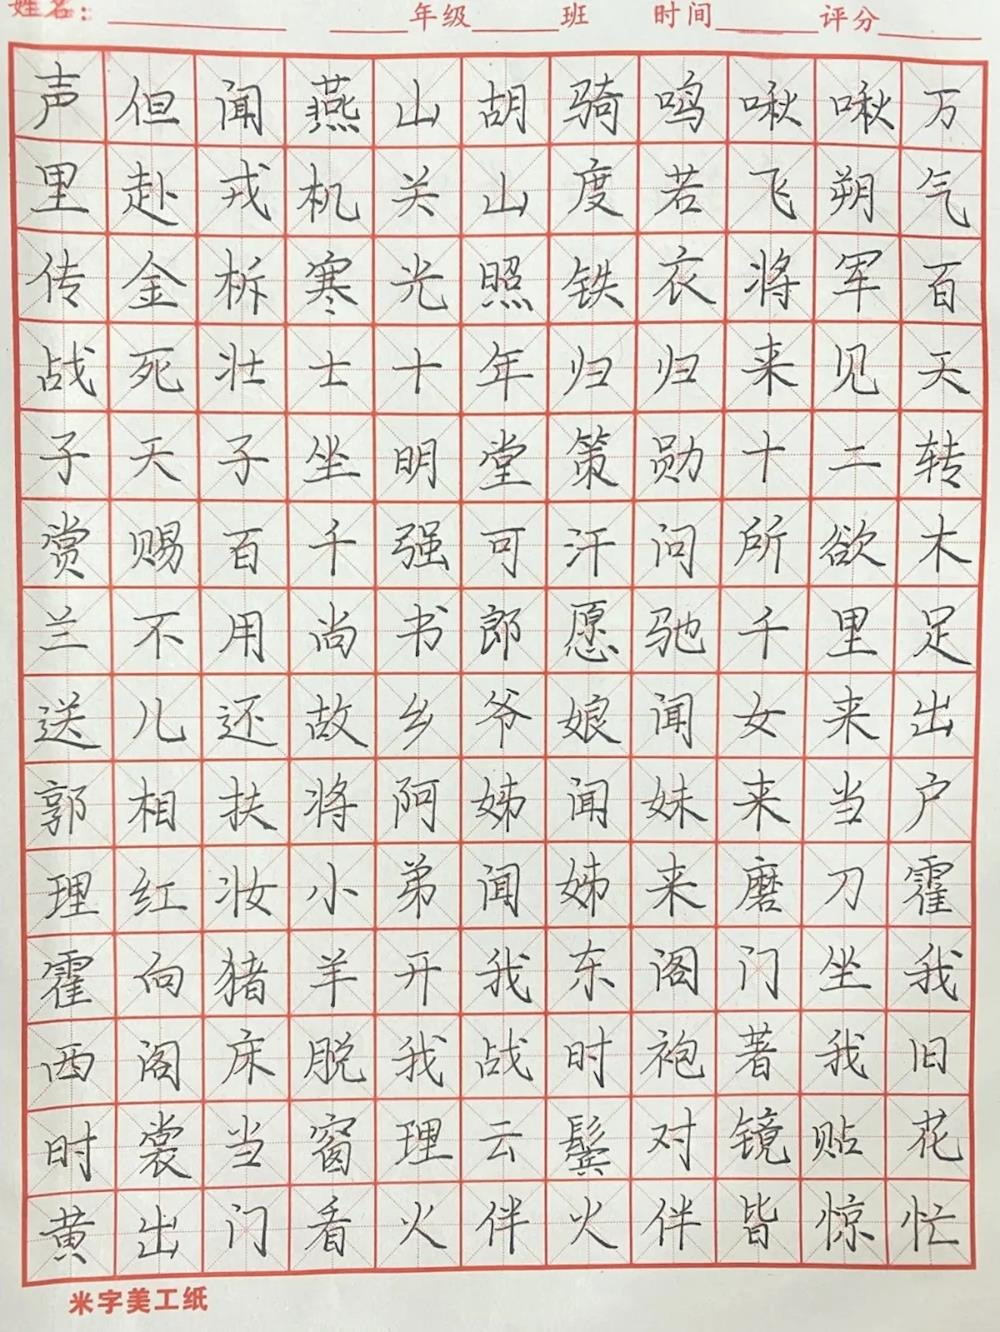 姓名：　　　年级　　班　　时间　　评分
声但闻燕山胡骑鸣啾啾万
里赴戎机关山度若飞朔气
传金柝寒光照铁衣将军百
战死壮士十年归归来见天
子天子坐明堂策勋十二转
赏赐百千强可汗问所欲木
兰不用尚书郎愿驰千里足
送儿还故乡爷娘闻女来出
郭相扶将阿姊闻妹来当户
理红妆小弟闻姊来磨刀霍
霍向猪羊开我东阁门坐我
西阁床脱我战时袍著我旧
时裳当窗理云鬓对镜贴花
黄出门看火伴火伴皆惊忙
米字美工纸